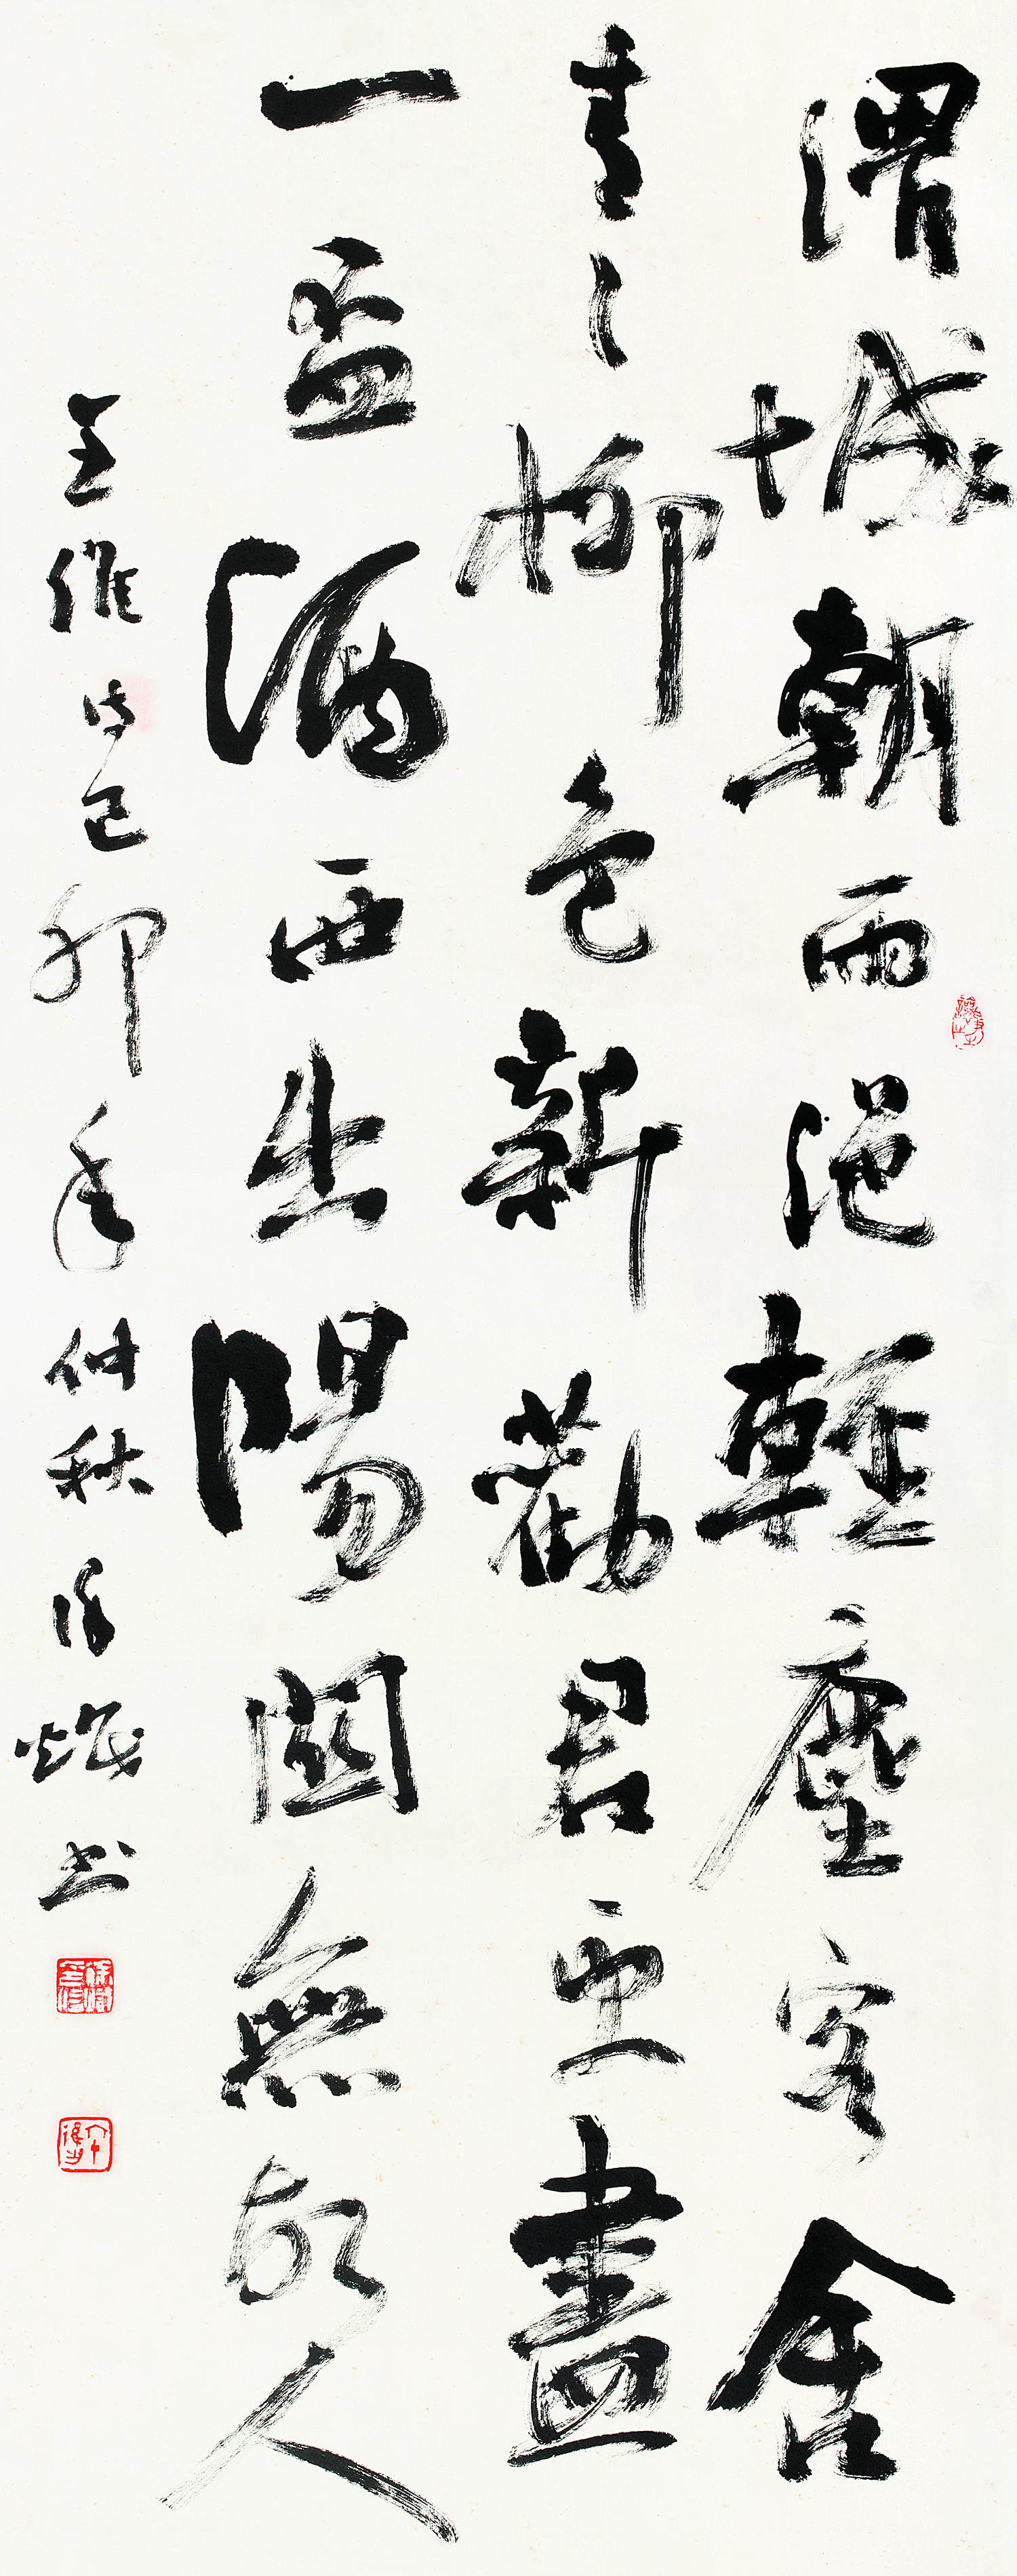 渭城朝雨浥輕塵客舍
青〻柳色新勸君更盡
一盃酒西出陽關無故人
王維詩己卯年仲秋徐熾书